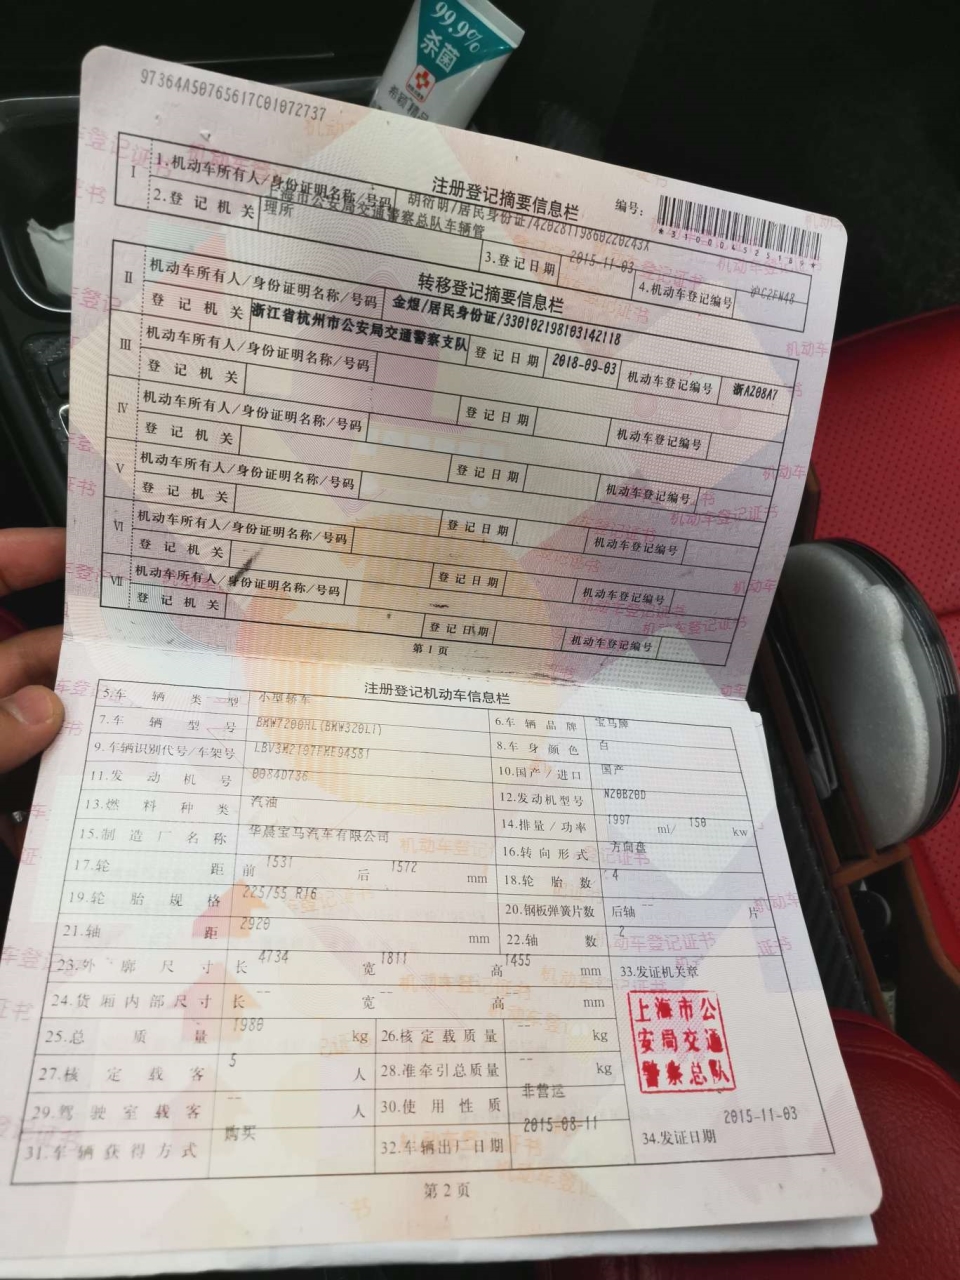 99.9%
杀菌
97364A50765617C01072737
注册登记摘要信息栏
编号:
*310004525189*
I
1.机动车所有人/身份证明名称/号码
2.登记机关
上海市公安局交通警察总队车辆管理所
3.登记日期
2015-11-03
4.机动车登记编号
沪C2FN48
转移登记摘要信息栏
II
机动车所有人/身份证明名称/号码
金煜/居民身份证/330102198103142118
登记机关
浙江省杭州市公安局交通警察支队
登记日期
2018-09-03
机动车登记编号
浙A208A7
III
机动车所有人/身份证明名称/号码
登记机关
登记日期
机动车登记编号
IV
机动车所有人/身份证明名称/号码
登记机关
登记日期
机动车登记编号
V
机动车所有人/身份证明名称/号码
登记机关
登记日期
机动车登记编号
VI
机动车所有人/身份证明名称/号码
登记机关
登记日期
机动车登记编号
VII
机动车所有人/身份证明名称/号码
登记机关
登记日期
机动车登记编号
第1页
注册登记机动车信息栏
5.车辆类型 小型轿车
6.车辆品牌 宝马牌
7.车辆型号 BMW7200HL(BMW320LI)
8.车身颜色 白
9.车辆识别代号/车架号
10.国产/进口 国产
11.发动机号 0084D736
12.发动机型号 N20B20D
13.燃料种类 汽油
14.排量/功率 1997 ml/ 150 kw
15.制造厂名称 华晨宝马汽车有限公司
16.转向形式 方向盘
17.轮距 前 1531 后 1572 mm
18.轮胎数 4
19.轮胎规格 225/55 R16
20.钢板弹簧片数 后轴 -- 片
21.轴距 2920 mm
22.轴数 2
23.外廓尺寸 长 4734 宽 1811 高 1455 mm
33.发证机关章
24.货厢内部尺寸 长 -- 宽 -- 高 -- mm
上海市公
安局交通
警察总队
25.总质量 1980 kg
26.核定载质量 -- kg
27.核定载客 5 人
28.准牵引总质量 -- kg
29.驾驶室载客 -- 人
30.使用性质 非营运
31.车辆获得方式 购买
32.车辆出厂日期 2015-08-11
34.发证日期 2015-11-03
第2页